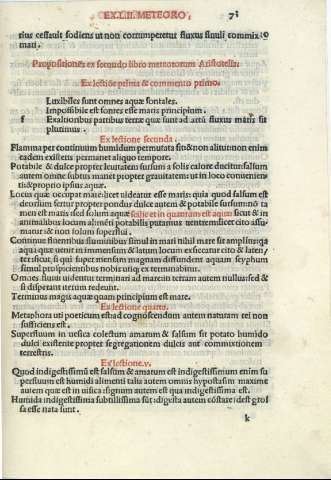 EX.L.II. METEORO, 71
rius cessauit fodiens ut non corrumperetur fluxus fluuii commix. o
mari.
Propositiones ex secundo libro metheororum Aristotelis.
Ex lectiõe prima & commento primo.
Luxibiles sunt omnes aquæ fontales.
Impossibile est fontes esse maris principium.
f Exaltioribus partibus terræ quæ sunt ad artũ fluxus maris fit
plurimus.
Ex lectione secunda.
Flamma per continuum humidum permutata fit & non alitur non enim
eadem existens permanet aliquo tempore.
Potabile & dulce propter leuitatem sursum a solis calore ducitur salsum
autem omne subtus manet propter grauitatem: ut in loco conuenien
ti & proprio ipsius aquæ.
Locus quæ occupat mare licet uideatur esse maris: quia quod salsum est
deorsum fertur propter pondus dulce autem & potabile sursum nõ ta
men est maris sed solum aquæ scilicet in quantum est aqua sicut & in
animalibus locum alimẽti potabilis putamus uentrem licet cito assu
matur: & non solum superflui.
Continue fluentibus fluminibus simul in mari nihil mare fit amplius qa
aqua quæ uenit in immensum & latum locum exsiccatur cito & laten/
ter sicut, si quis super mensam magnam diffundent aquam scyphum
simul prospicientibus nobis utiq; exterminabitur.
Omnes fluuii uidentur terminari ad mare in terram autem nullus: sed &
si disperant iterum redeunt.
Terminus magis aquæ quam principium est mare.
Ex lectione quarta.
Metaphora uti poeticum est ad cognoscendum autem naturam rei non
sufficiens est.
Superfluum in uesica colestum amarum & salsum fit potato humido
dulci existente propter segregationem dulcis aut commixtionem
terrestris.
Ex lectione.v.
Quod indigestissimũ est salsum & amarum est indigestissimum enim su
perfluum est humidi alimenti talia autem omnis hypostasim maxime
autem quæ est in uesica: signum autem est quia indigestissima est.
Humida indigestissima subtilissima sũt: digesta autem cõstare: dest grof
sa esse nata sunt.
k